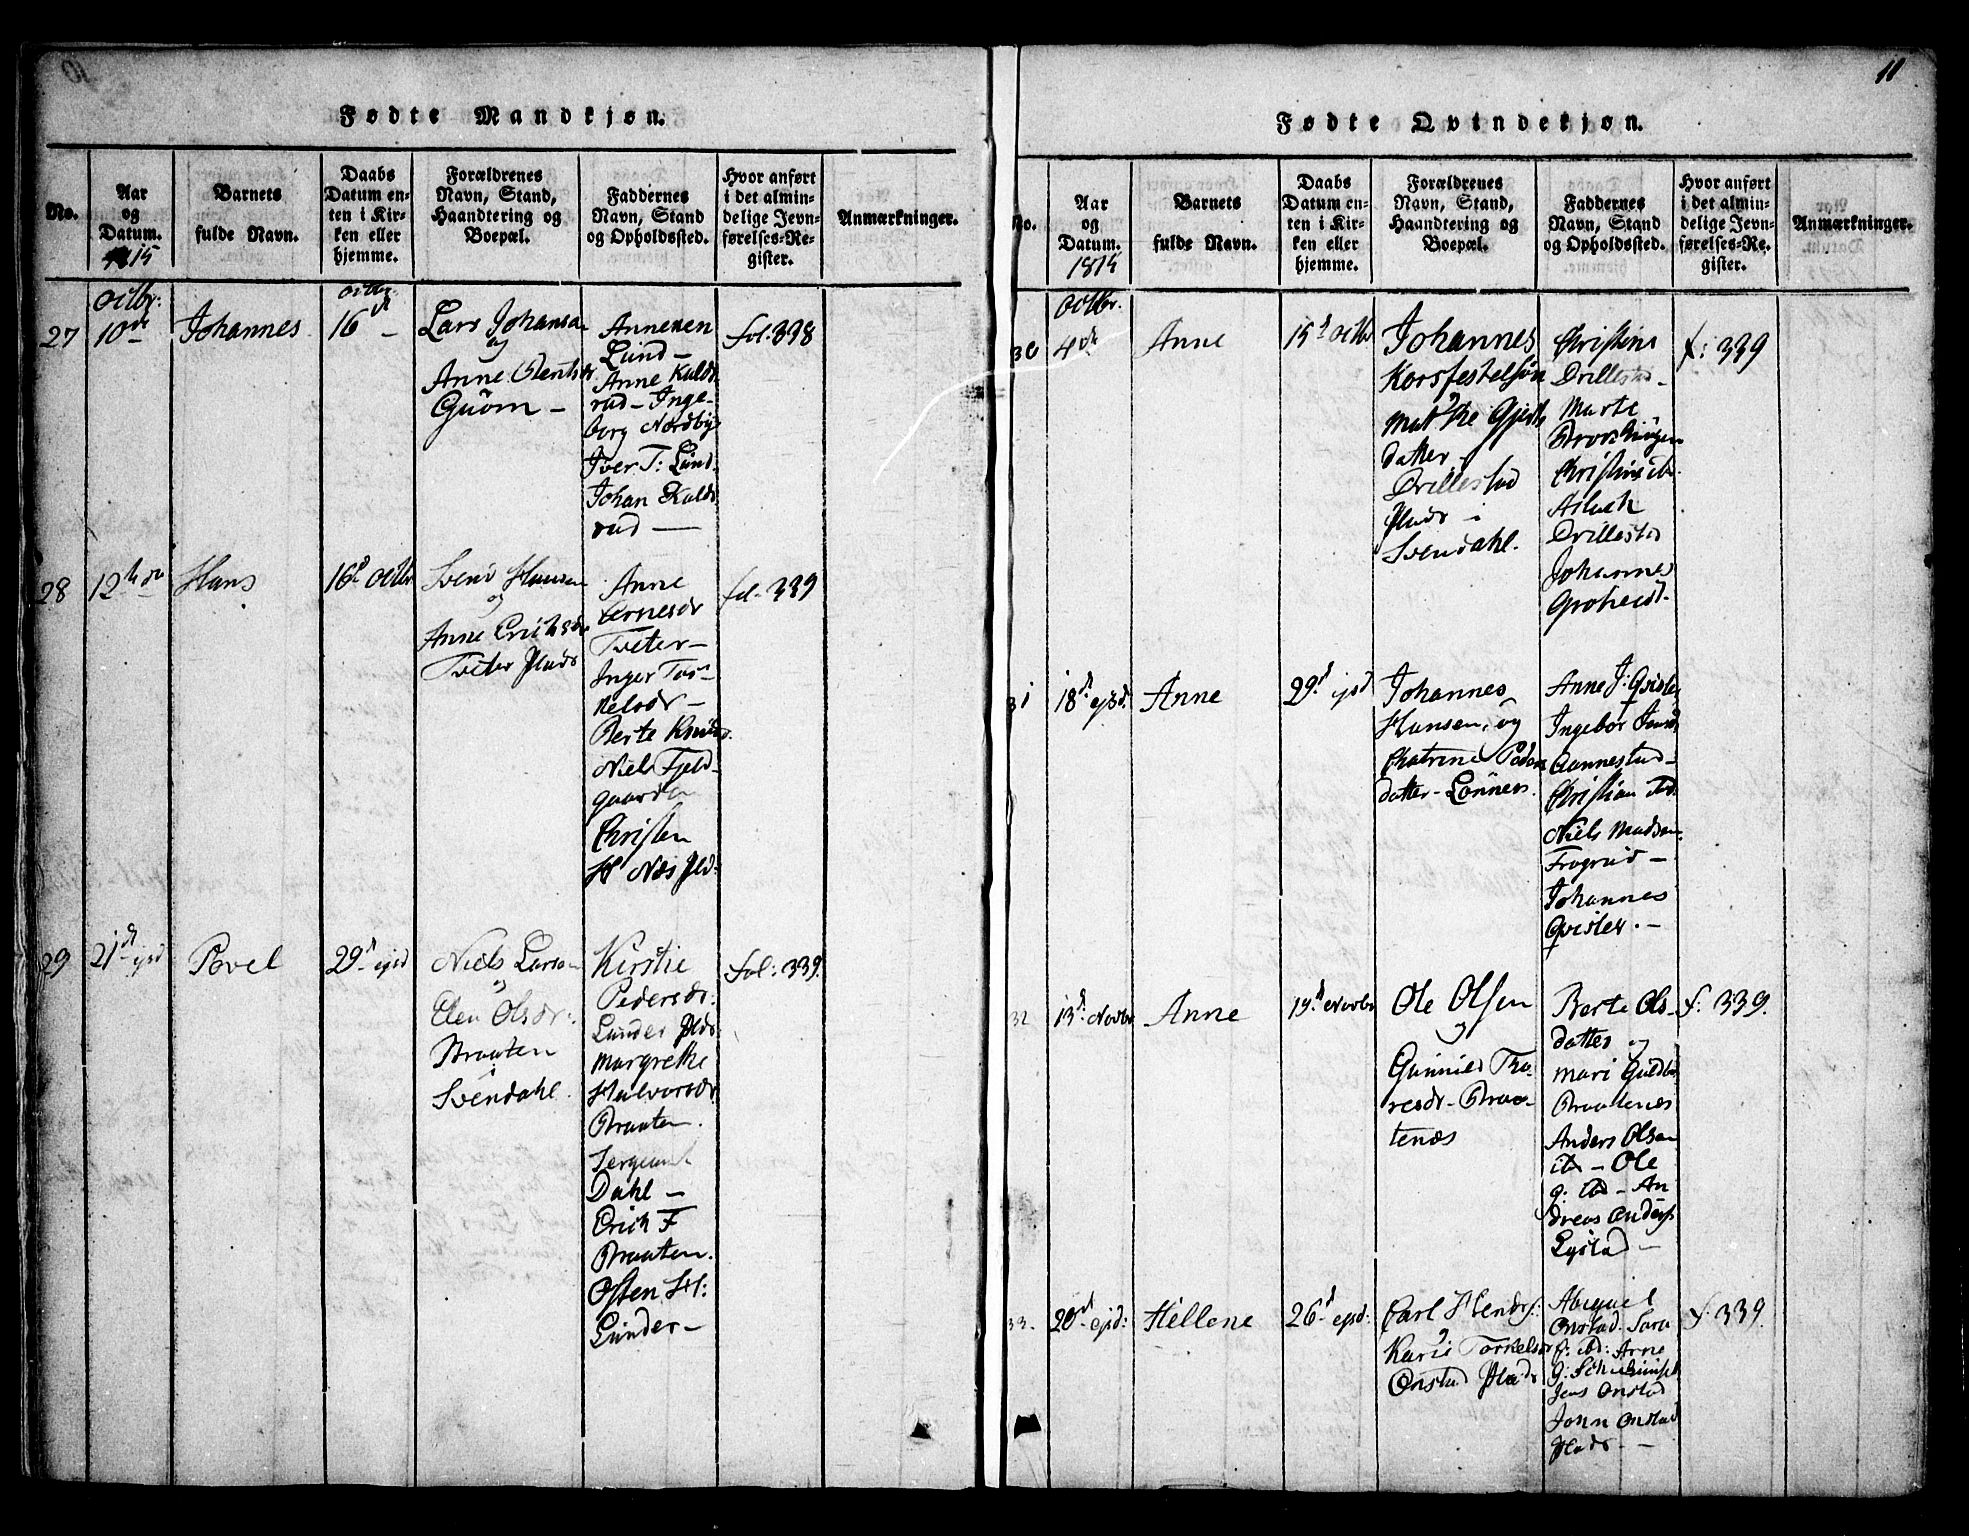 11
Fødte Mandkjøn.
No.
Aar
og
Datum.
1815
Barnets
fulde Navn.
Daabs
Datum en-
ten i Kir-
ken eller
hjemme.
Forældrenes
Navn, Stand,
Haandtering og
Boepæl.
Faddernes
Navn, Stand
og Opholdssted.
Hvor anført
i det almin-
delige Jevn-
førelses-Re-
gister.
Anmærkninger.
27
Octbr:
10de
Johannes
Octbr.
16d
Lars Johansen
og
Anne
Lund
Anne
rud - Inge-
borg Nordbye
Iver T: Lund
Johan
rud
fol: 338
28
12te
Hans
16d Octbr
Svend Hansen
og
Anne Erichsdr
Tveter Plads
Anne
Arnesdr
Tveter-
Inger Tor-
kelsdr-
Berte
Niels Fjeld-
gaarden
Christen
H Næs Pld.
fol. 339
29
21d ejsd
Povel
29d ejsd
Niels Larsen
og
Elen Olsdr:
Braaten
i
Svendahl.
Kirstie
Pedersdr.
Lunder Plds:
Margrethe
Halvorsdr
Braaten.
Sergeant
Dahl -
Erich F
Braaten.
Osten H:
Lunder-
fol: 339.
Fødte Qvindekjøn.
No.
Aar
og
Datum.
1815
Barnets
fulde Navn.
Daabs
Datum en-
ten i Kir-
ken eller
hjemme.
Forældrenes
Navn, Stand,
Haandtering og
Boepæl.
Faddernes
Navn, Stand
og Opholdssted.
Hvor anført
i det almin-
delige Jevn-
førelses-Re-
gister.
Anmærkninger.
30
Octbr.
4de
Anne
15d Octbr
Johannes
Korsfestelsøn
og
datter
Drillestad
Plads i
Svendahl.
Christine
Drillestad-
Marte
Christine ibd.
Aslach
Drillestad
Johannes
f: 339
31
18d: ejsd.
Anne
29d ejsd
Johannes
Hansen, og
Chatrine Peders
datter - Lønnes.
Anne J: Qvister
Ingebor
Aannestad-
Christian ibd.
Niels Madsen
Frogrud -
Johannes
Qvister. -
32
13d: Novbr
Anne
19d Novbr
Ole Olsen
og
Gunnild Tho-
resdr - Braa-
tenæs
Berte Ols-
datter og
Mari
Braatenæs
Anders Olsen
ibd - Ole
G: ibd - An
dreas Anders
Lystad -
f: 339.
33.
20d ejsd:
Hellene
26d ejsd:
Carl
og
Karie Torkelsdr
Onstad Plads
Abigael
Onstad. Sara
ibd: Arne
Jens Onstad
John Onstad
Plads -
f: 339.